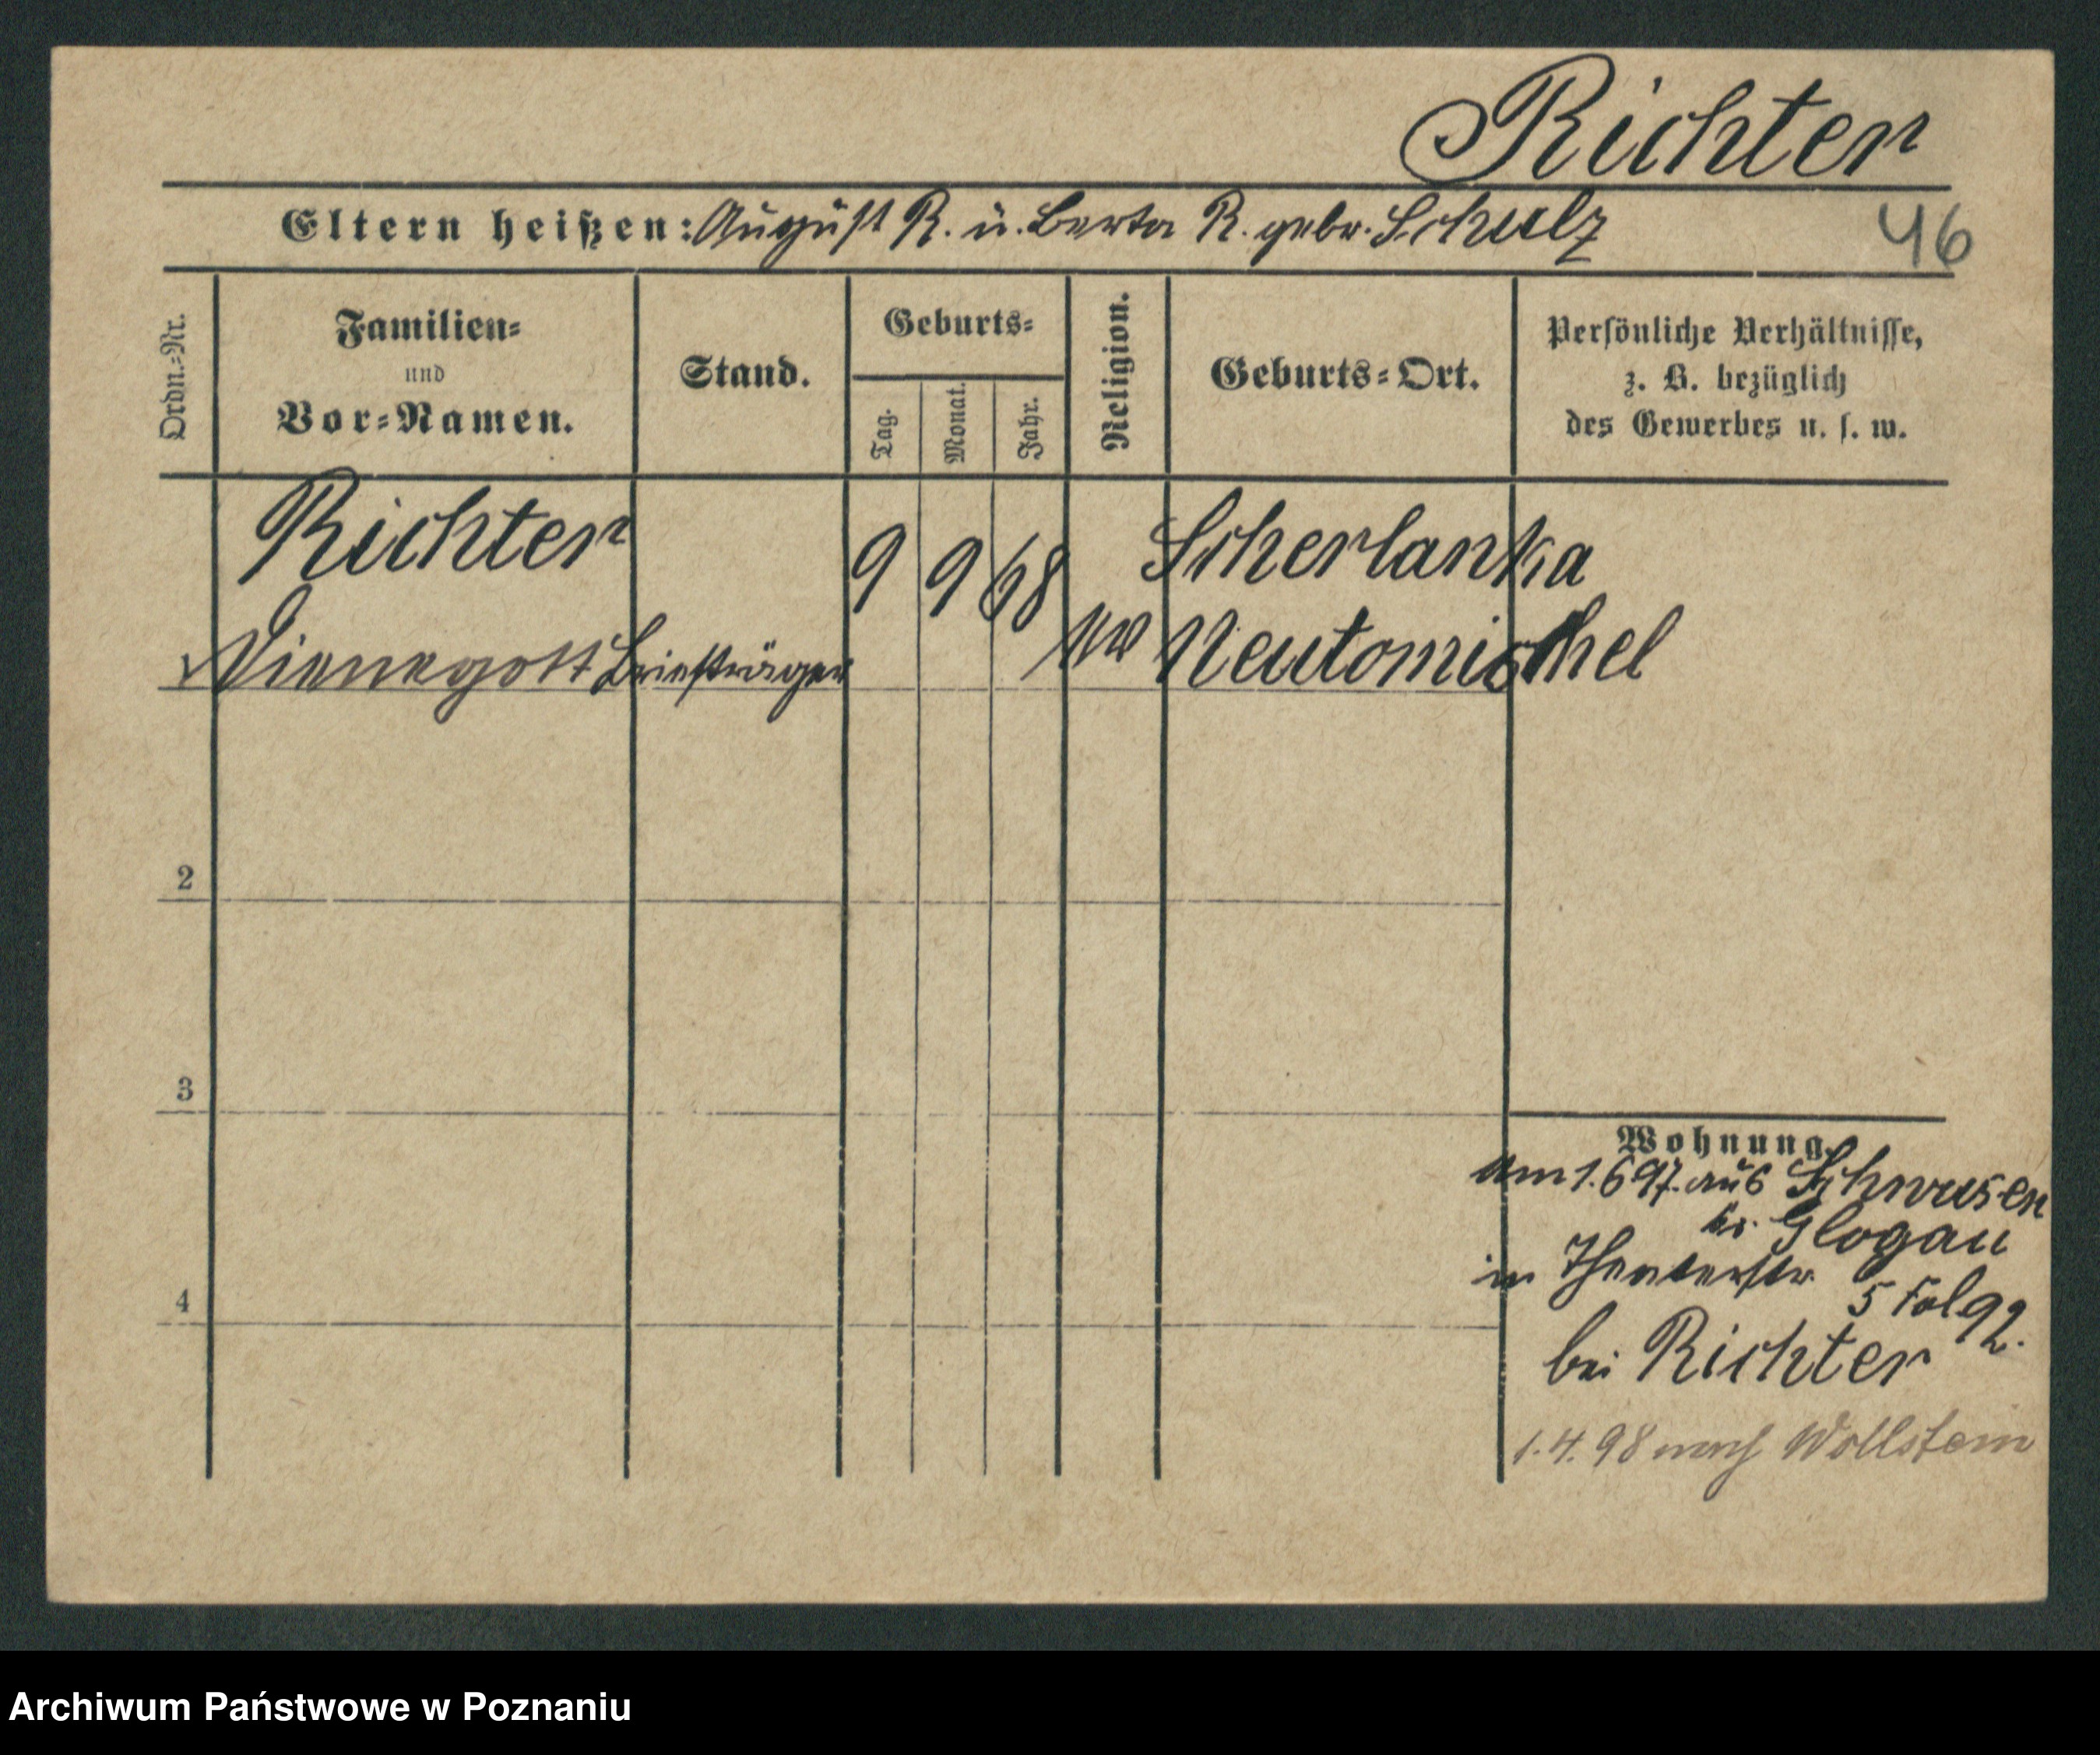 Richter
Eltern heißen: August R. u. Berta R. gebr. Schulz
46
Ordn.=Nr.
Familien=
und
Vor=Namen.
Stand.
Geburts=
Tag.
Monat.
Jahr.
Religion.
Geburts=Ort.
Persönliche Verhältnisse,
z. B. bezüglich
des Gewerbes u. s. w.
Richter
9 9 68
Scherlanka
Briefträger
Neutomischel
2
3
4
Wohnung.
am 1.6 97. aus Schwusen
kr. Glogau
in Theaterstr.
5 Fol 92.
bei Richter
1.4.98 nach Wollstein
Archiwum Państwowe w Poznaniu